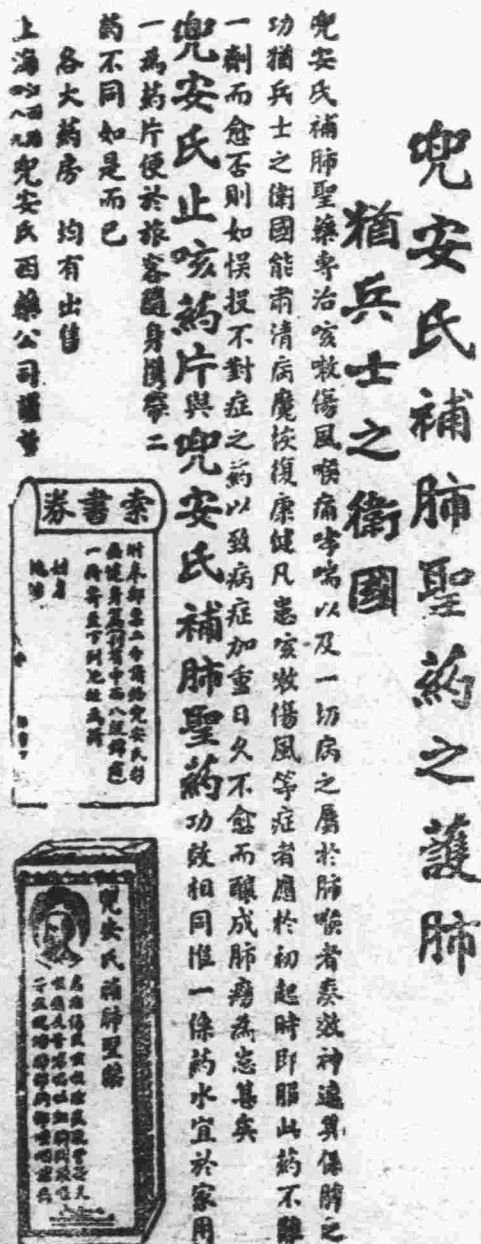 兜安氏補肺聖葯之護肺
猶兵士之衛國
兜安氏補肺聖藥專治咳嗽傷風喉痛哮喘以及一切病之屬於肺喉者奏效神速其保肺之
功猶兵士之衛國能肅清病魔恢復康健凡患咳嗽傷風等症者應於初起時即服此葯不難
一劑而愈否則如悞投不對症之葯以致病症加重日久不愈而釀成肺癆為患甚矣
兜安氏止咳葯片與兜安氏補肺聖葯功效相同惟一係葯水宜於家用
一為葯片便於旅客隨身攜帶二
葯不同如是而已
各大葯房 均有出售
上海 兜安氏西藥公司謹啓
索書券
附奉郵票二分請給兜安氏
一冊寄至下列地址為荷
姓名
地址
兜安氏補肺聖藥